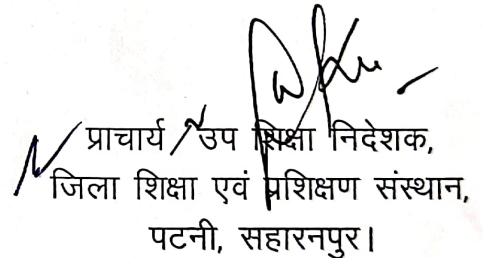 प्राचार्य / उप शिक्षा निदेशक,
जिला शिक्षा एवं प्रशिक्षण संस्थान,
पटनी, सहारनपुर।